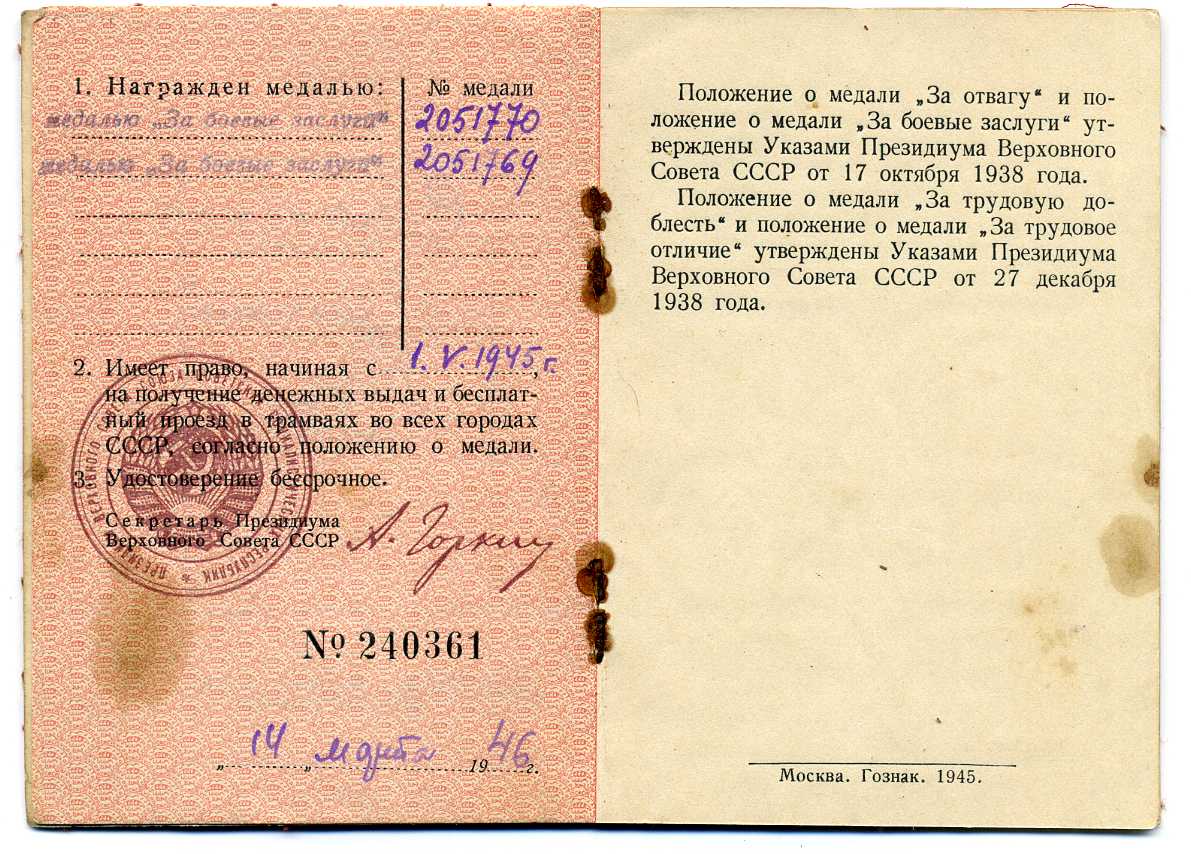 1. Награжден медалью:
№ медали
медалью „За боевые заслуги“
2051770
медалью „За боевые заслуги“
2051769
2. Имеет право, начиная с 1.V.1945, г.
на получение денежных выдач и бесплат-
ный проезд в трамваях во всех городах
СССР, согласно положению о медали.
3. Удостоверение бессрочное.
Секретарь Президиума
Верховного Совета СССР А. Горкин
№ 240361
„14„ марта 1946 г.
Положение о медали „За отвагу“ и по-
ложение о медали „За боевые заслуги“ ут-
верждены Указами Президиума Верховного
Совета СССР от 17 октября 1938 года.
Положение о медали „За трудовую до-
блесть“ и положение о медали „За трудовое
отличие“ утверждены Указами Президиума
Верховного Совета СССР от 27 декабря
1938 года.
Москва. Гознак. 1945.